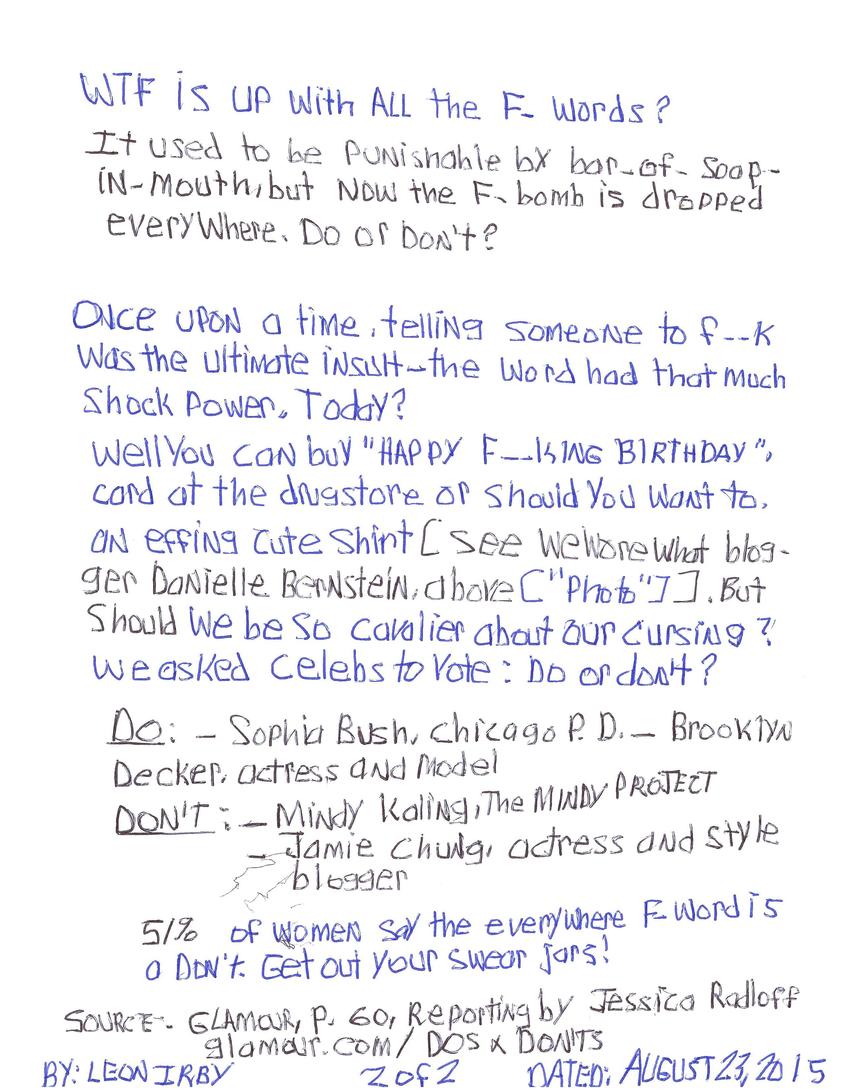 WTF is UP With ALL the F- Words?
It used to be Punishable by bar-of-soap-
in-Mouth, but Now the F-bomb is dropped
everywhere. Do or Don't?
Once upon a time, telling someone to f--k
Was the ultimate insult-the Word had that Much
Shock Power. Today?
Well You can buy "HAPPY F--KING BIRTHDAY",
card at the drugstore or Should You Want to,
an effing cute Shirt [see WeWoreWhat blog-
ger Danielle Bernstein, above ["Photo"]]. But
Should We be So Cavalier about our Cursing?
We asked Celebs to Vote: Do or don't?
Do: - Sophia Bush, Chicago P. D. - Brooklyn
Decker, actress and Model
DON'T: - Mindy Kaling, The MINDY PROJECT
- Jamie Chung, actress and style
blogger
51% of Women say the everywhere F-Word is
a DON'T. Get out your swear jars!
SOURCE - GLAMOUR, P. 60, Reporting by Jessica Radloff
glamour.com/DOS x DON'TS
BY: LEON IRBY 2 of 2 DATED: AUGUST 23, 2015